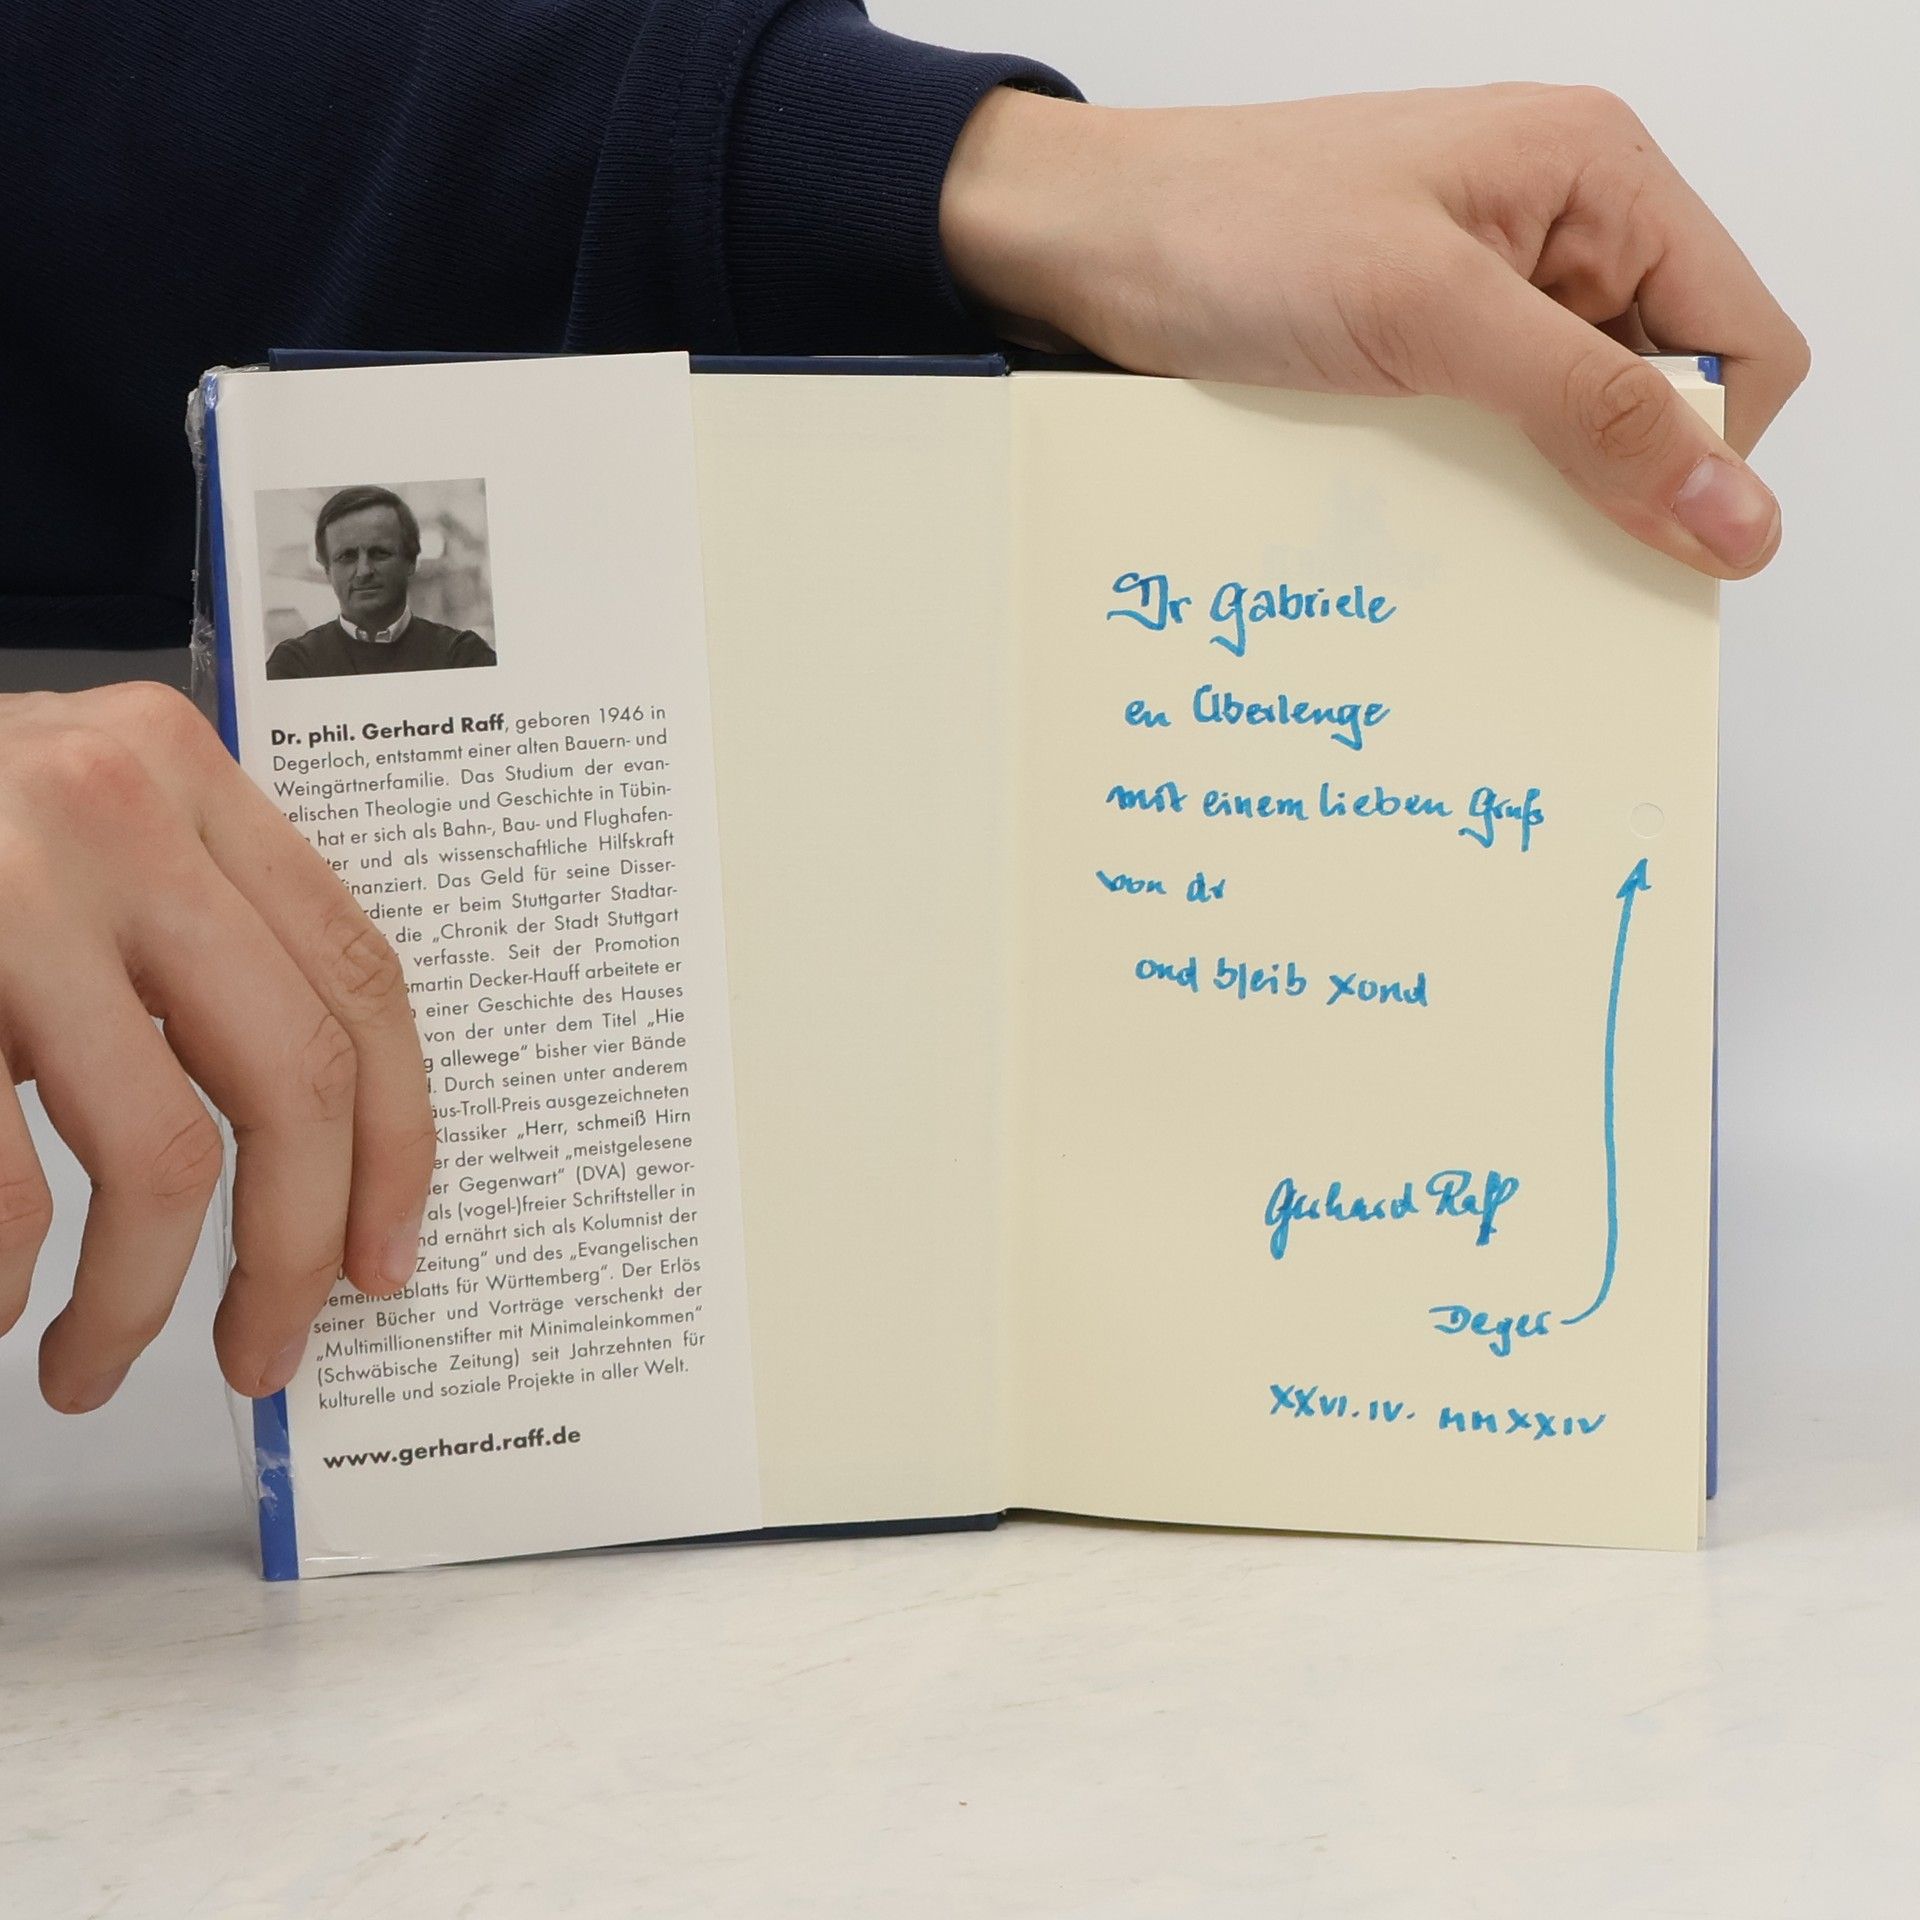 Dr. phil. Gerhard Raff, geboren 1946 in
Degerloch, entstammt einer alten Bauern- und
Weingärtnerfamilie. Das Studium der evan-
gelischen Theologie und Geschichte in Tübin-
hat er sich als Bahn-, Bau- und Flughafen-
und als wissenschaftliche Hilfskraft
finanziert. Das Geld für seine Disser-
er beim Stuttgarter Stadtar-
die „Chronik der Stadt Stuttgart
verfasste. Seit der Promotion
Decker-Hauff arbeitete er
einer Geschichte des Hauses
von der unter dem Titel „Hie
allewege“ bisher vier Bände
Durch seinen unter anderem
äus-Troll-Preis ausgezeichneten
Klassiker „Herr, schmeiß Hirn
der weltweit „meistgelesene
Gegenwart“ (DVA) gewor-
als (vogel-)freier Schriftsteller in
nd ernährt sich als Kolumnist der
Zeitung“ und des „Evangelischen
Gemeindeblatts für Württemberg“. Der Erlös
seiner Bücher und Vorträge verschenkt der
„Multimillionenstifter mit Minimaleinkommen“
(Schwäbische Zeitung) seit Jahrzehnten für
kulturelle und soziale Projekte in aller Welt.
www.gerhard.raff.de
Dr Gabriele
en Überlenge
mit einem lieben Gruß
von dr
ond bleib xond
Gerhard Raff
Deger
XXVI.IV. MMXXIV